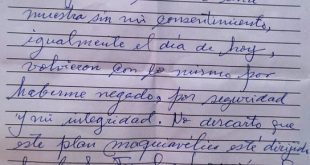 muestra sin mi consentimiento,
igualmente el día de hoy,
volvieron con lo mismo por
haberme negado, por seguridad
y mi integridad. No descarto que
este plan maquiavélico este dirigido